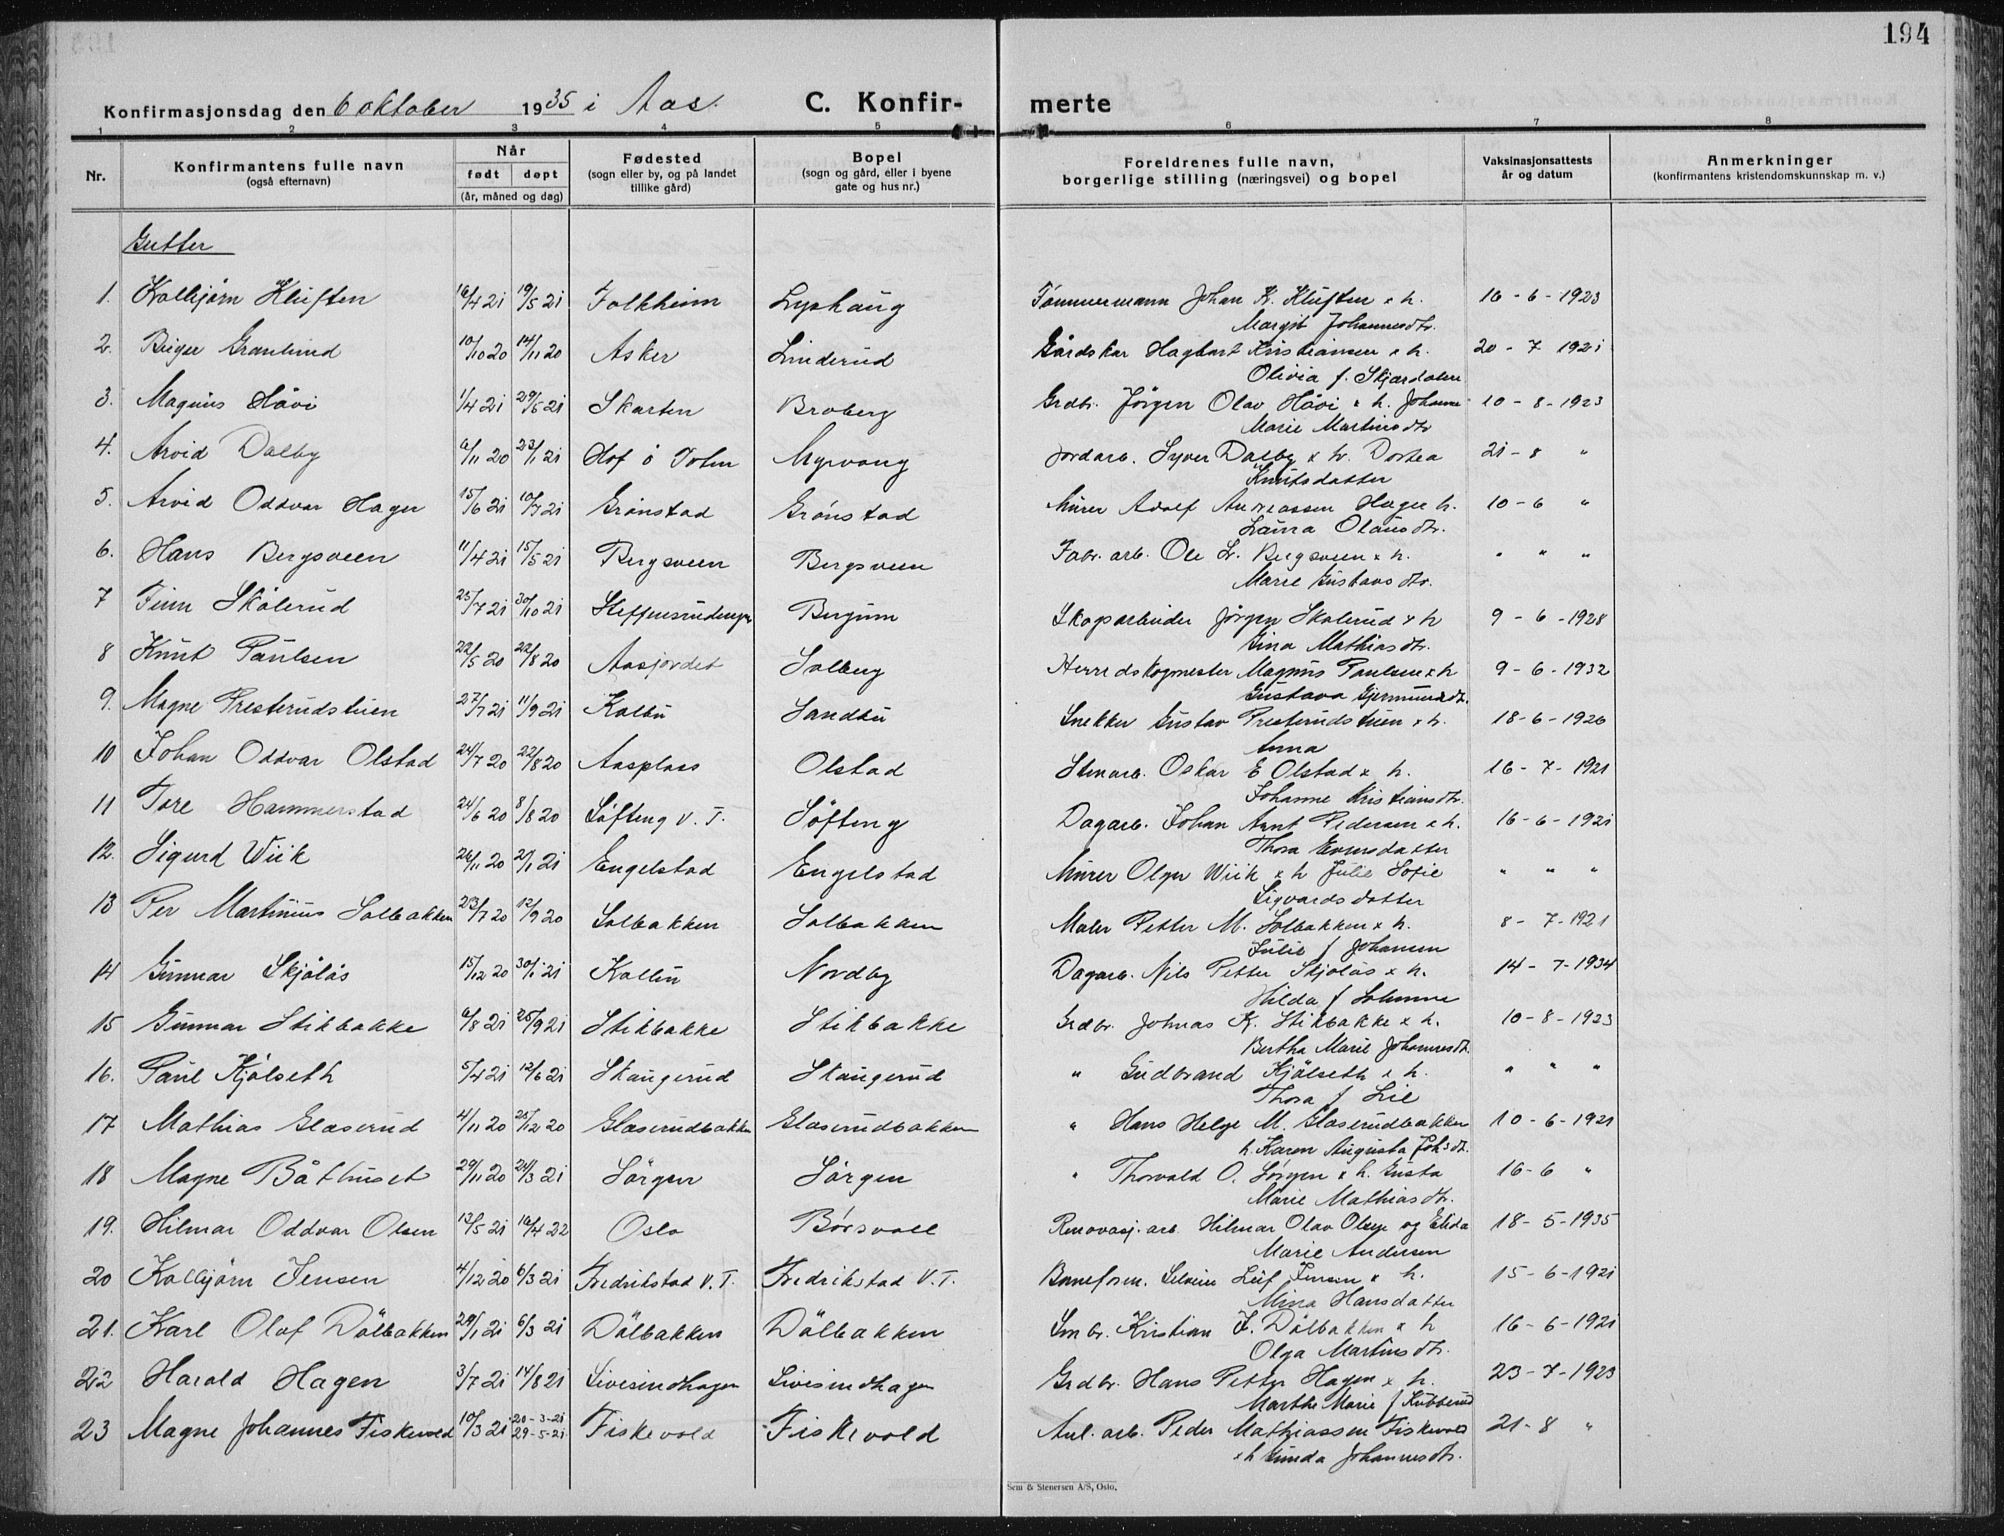 194
Konfirmasjonsdag den 6 oktober 1935 i Aas. C. Konfir- merte
1 2 3 4 5 6 7 8
Nr. Konfirmantens fulle navn (også efternavn) Når født døpt (år, måned og dag) Fødested (sogn eller by, og på landet tillike gård) Bopel (sogn og gård, eller i byene gate og hus nr.) Foreldrenes fulle navn, borgerlige stilling (næringsvei) og bopel Vaksinasjonsattests år og datum Anmerkninger (konfirmantens kristendomskunnskap m. v.)
Gutter
1. Kolbjørn Kluften 16/4 21 19/5 21 Folkheim Lyshaug Tømmermann Johan K. Kluften x h. 16-6-1923
Margit Johannesdtr.
2. Birger Granlund 10/10 20 14/11 20 Asker Linderud Gårdskar Hagbart Kristiansen x h. 20-7 1921
Olivia f. Skjærdalen
3. Magnus Håvi 1/4 21 29/5 21 Skarten Broberg Grdbr. Jørgen Olav Håvi x h. Johanne 10-8-1923
Marie Martinsdtr
4. Arvid Dalby 6/11 20 23/1 21 Hof ö Toten Myrvang Jordarb. Syver Dalby x h. Dortea 21-8 "
Knutsdatter
5. Arvid Oddvar Hager 15/6 21 10/7 21 Grønstad Grønstad Murer Adolf Andreassen Hager h. 10-6 "
Laura Olausdtr.
6. Hans Bergsveen 11/4 21 15/5 21 Bergsveen Bergsveen Fabr. arb. Ole L. Bergsveen x h. " " "
Marie Gustavsdtr.
7 Finn Skölerud 25/7 21 30/10 21 Steffensrudengen Bergum Skogsarbeider Jørgen Skolerud x h 9-6-1928
Gina Mathiasdtr.
8 Knut Paulsen 22/5 20 22/8 20 Aasjordet Solberg Herredskogmester Magnus Paulsen x h 9-6-1932
Gustava Gjermundsdtr.
9. Magne Presterudstuen 27/7 21 11/9 21 Kolbu Sandbu Snekker Gustav Presterudstuen x h. 18-6-1926
Anna
10 Johan Oddvar Olstad 24/7 20 22/8 20 Aasplass Olstad Stenarb. Oskar E Olstad x h. 16-7-1921
Johanne Kristiansdtr.
11 Tore Hammerstad 24/6 20 8/8 20 Söfteng V. T. Söfteng Dagarb. Johan Arnt Pedersen x h. 16-6-1921
Thora Evensdatter
12. Sigurd Wiik 26/11 20 2/1 21 Engelstad Engelstad Murer Olger Wiik x h Julie Sofie " " "
Sigvardsdatter
13 Per Martinius Solbakken 23/7 20 12/9 20 Solbakken Solbakken Maler Petter M. Solbakken x h. 8-7-1921
Julie f Johansen
14 Gunnar Skjölås 15/12 20 30/1 21 Kolbu Nordby Dagarb. Nils Petter Skjolås x h. 14-7-1934
Hilda f
15 Gunnar Stikbakke 6/8 21 25/9 21 Stikbakke Stikbakke Grdbr. Johnas K. Stikbakke x h. 10-8-1923
Bertha Marie Johannesdtr.
16. Paul Kjølseth 5/4 21 12/6 21 Skaugerud Skaugerud " Gudbrand Kjölseth x h. " " "
Thora f Lie
17 Mathias Glæserud 4/11 20 25/12 20 Glæserudbakken Glæserudbakken " Hans Helge M. Glæserudbakken 10-6-1921
h. Karen Augusta Johsdtr.
18 Magne Båthuset 29/11 20 24/3 21 Sörgen Sørgen " Thorvald O. Sørgen x h. Gusta 16-6 "
Marie Mathiasdtr.
19. Hilmar Oddvar Olsen 13/5 21 16/4 22 Oslo Børsvoll Renovasj. arb. Hilmar Olav Olsen og Elida 18-5-1935
Marie Andersen
20 Kolbjørn Jensen 4/12 20 6/3 21 Fredrikstad V. T. Fredrikstad V. T. Baneform. Leif Jensen x h. 15-6-1921
Mina Hansdatter
21. Karl Olaf Dölbakken 29/1 21 6/3 21 Dölbakken Dölbakken Smbr. Kristian J. Dölbakken x h 16-6-1921
Olga Martinsdtr.
22 Harald Hagen 3/7 21 14/8 21 Sivesindhagen Sivesindhagen Grdbr. Hans Petter Hagen x h. 23-7-1923
Marthe Marie f Kubberud
23 Magne Johannes Fiskevold 10/3 21 20-3-21 29-5-21 Fiskevold Fiskevold Anl. arb. Peder Mathiassen Fiskevold 21-8 "
x h Gunda Johannesdtr.
Sem & Stenersen A/S, Oslo.